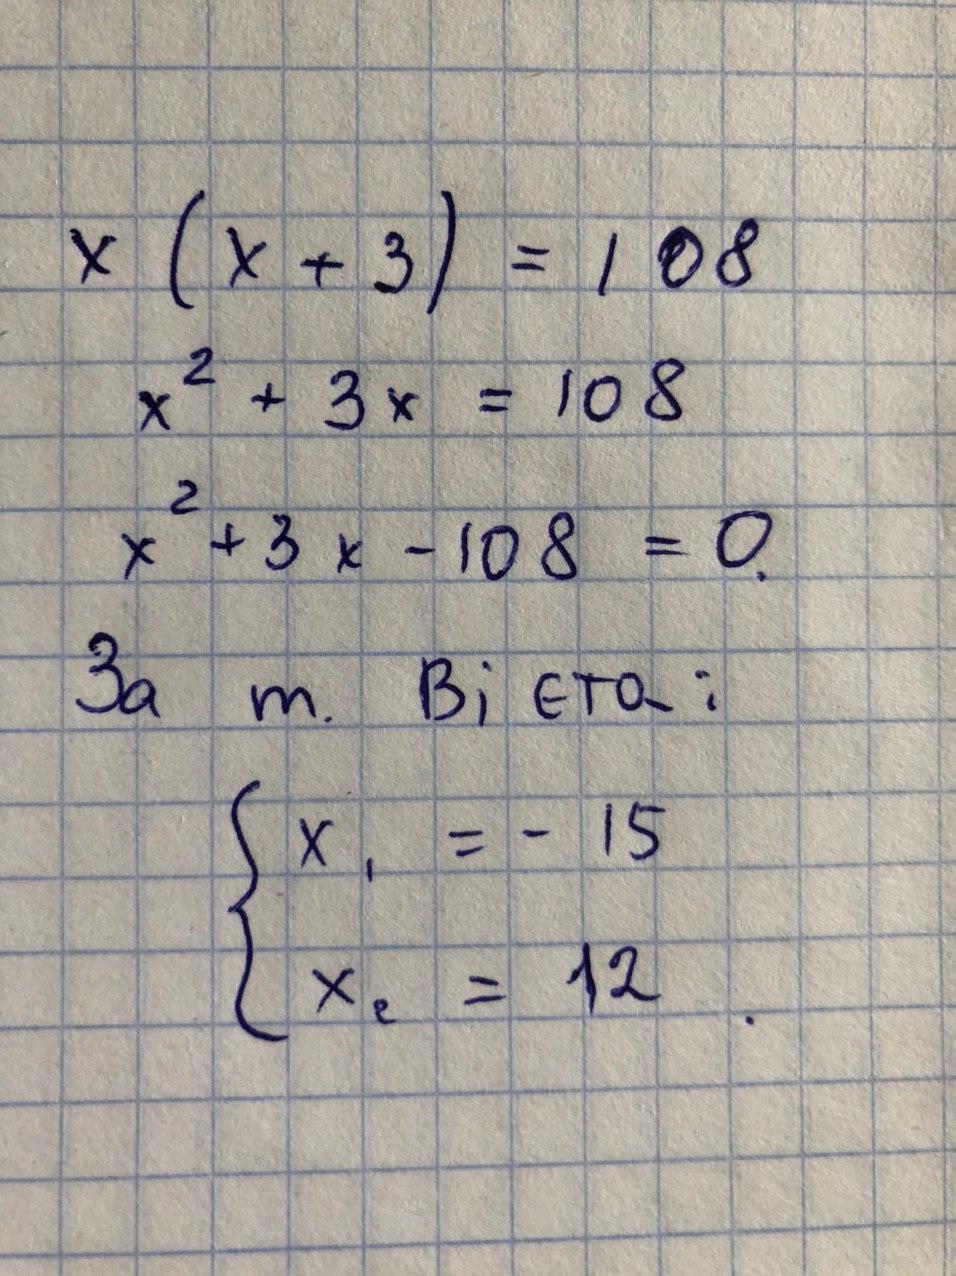 x (x + 3) = 108
x² + 3x = 108
x² + 3x - 108 = 0.
За т. Вієта:
{ x₁ = - 15
x₂ = 12 .